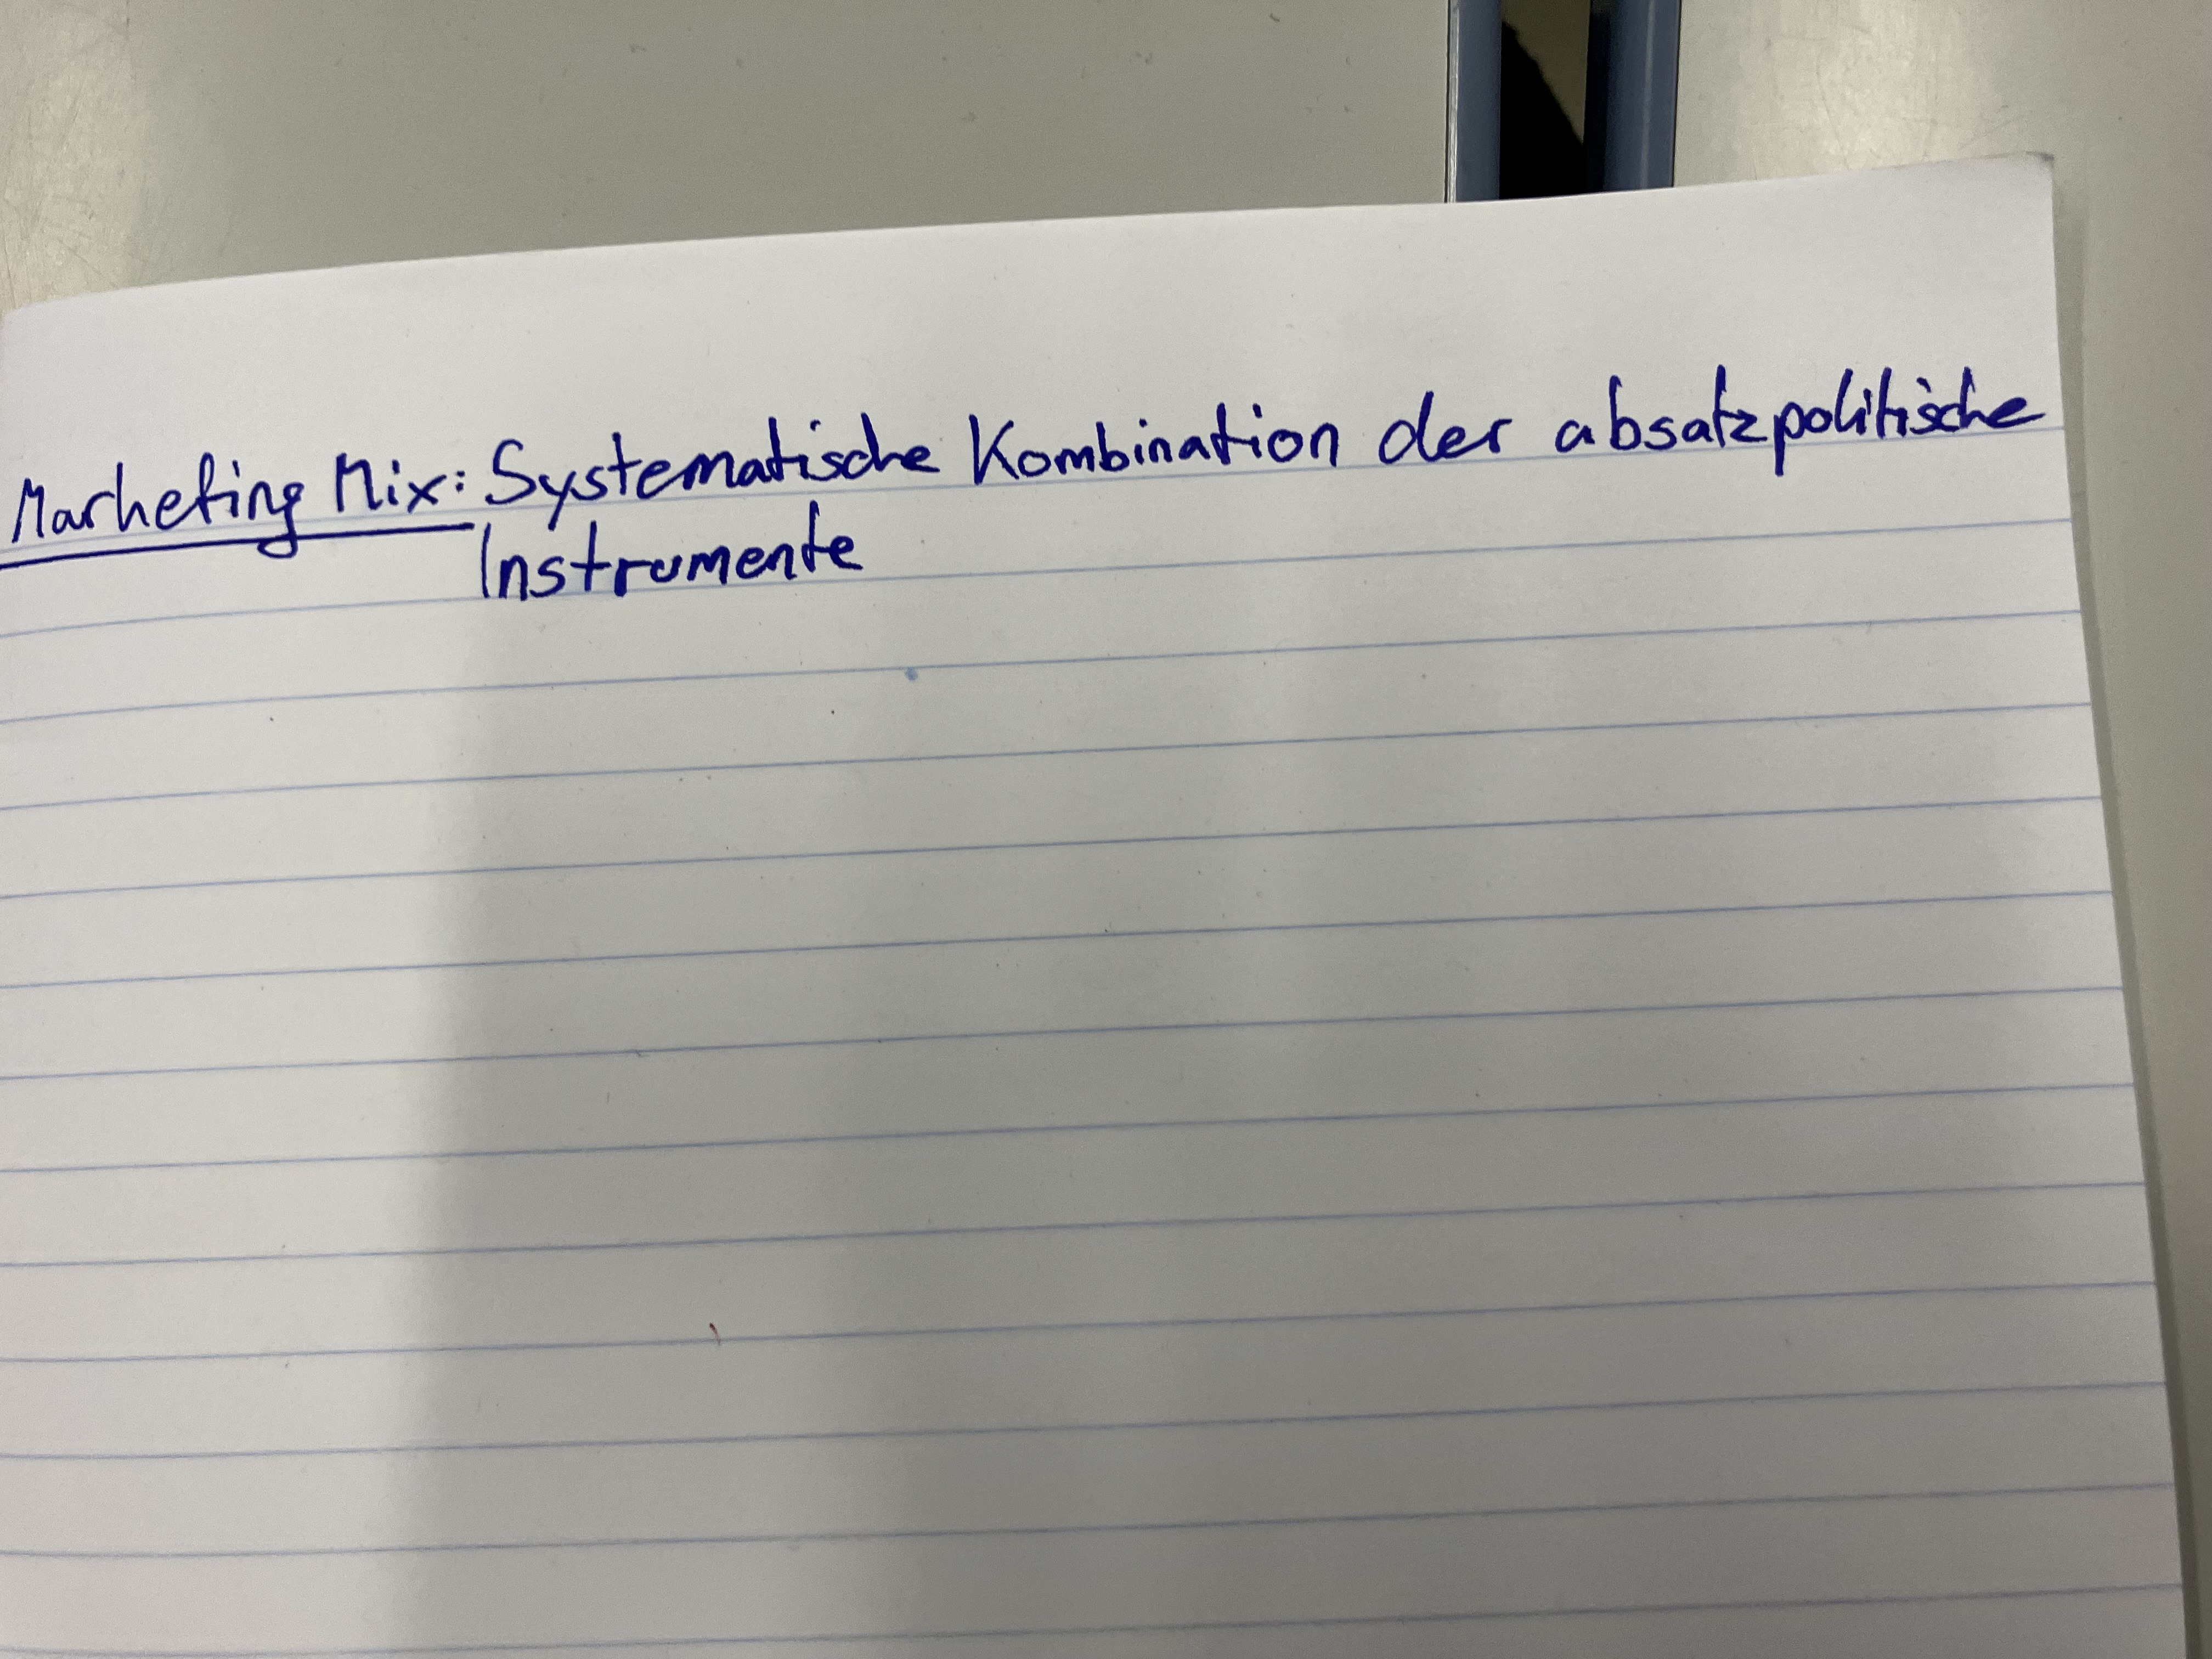 Marketing Mix: Systematische Kombination der absatzpolitische
Instrumente